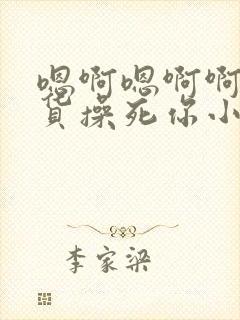 嗯啊嗯啊啊骚
货操死你小
李家梁